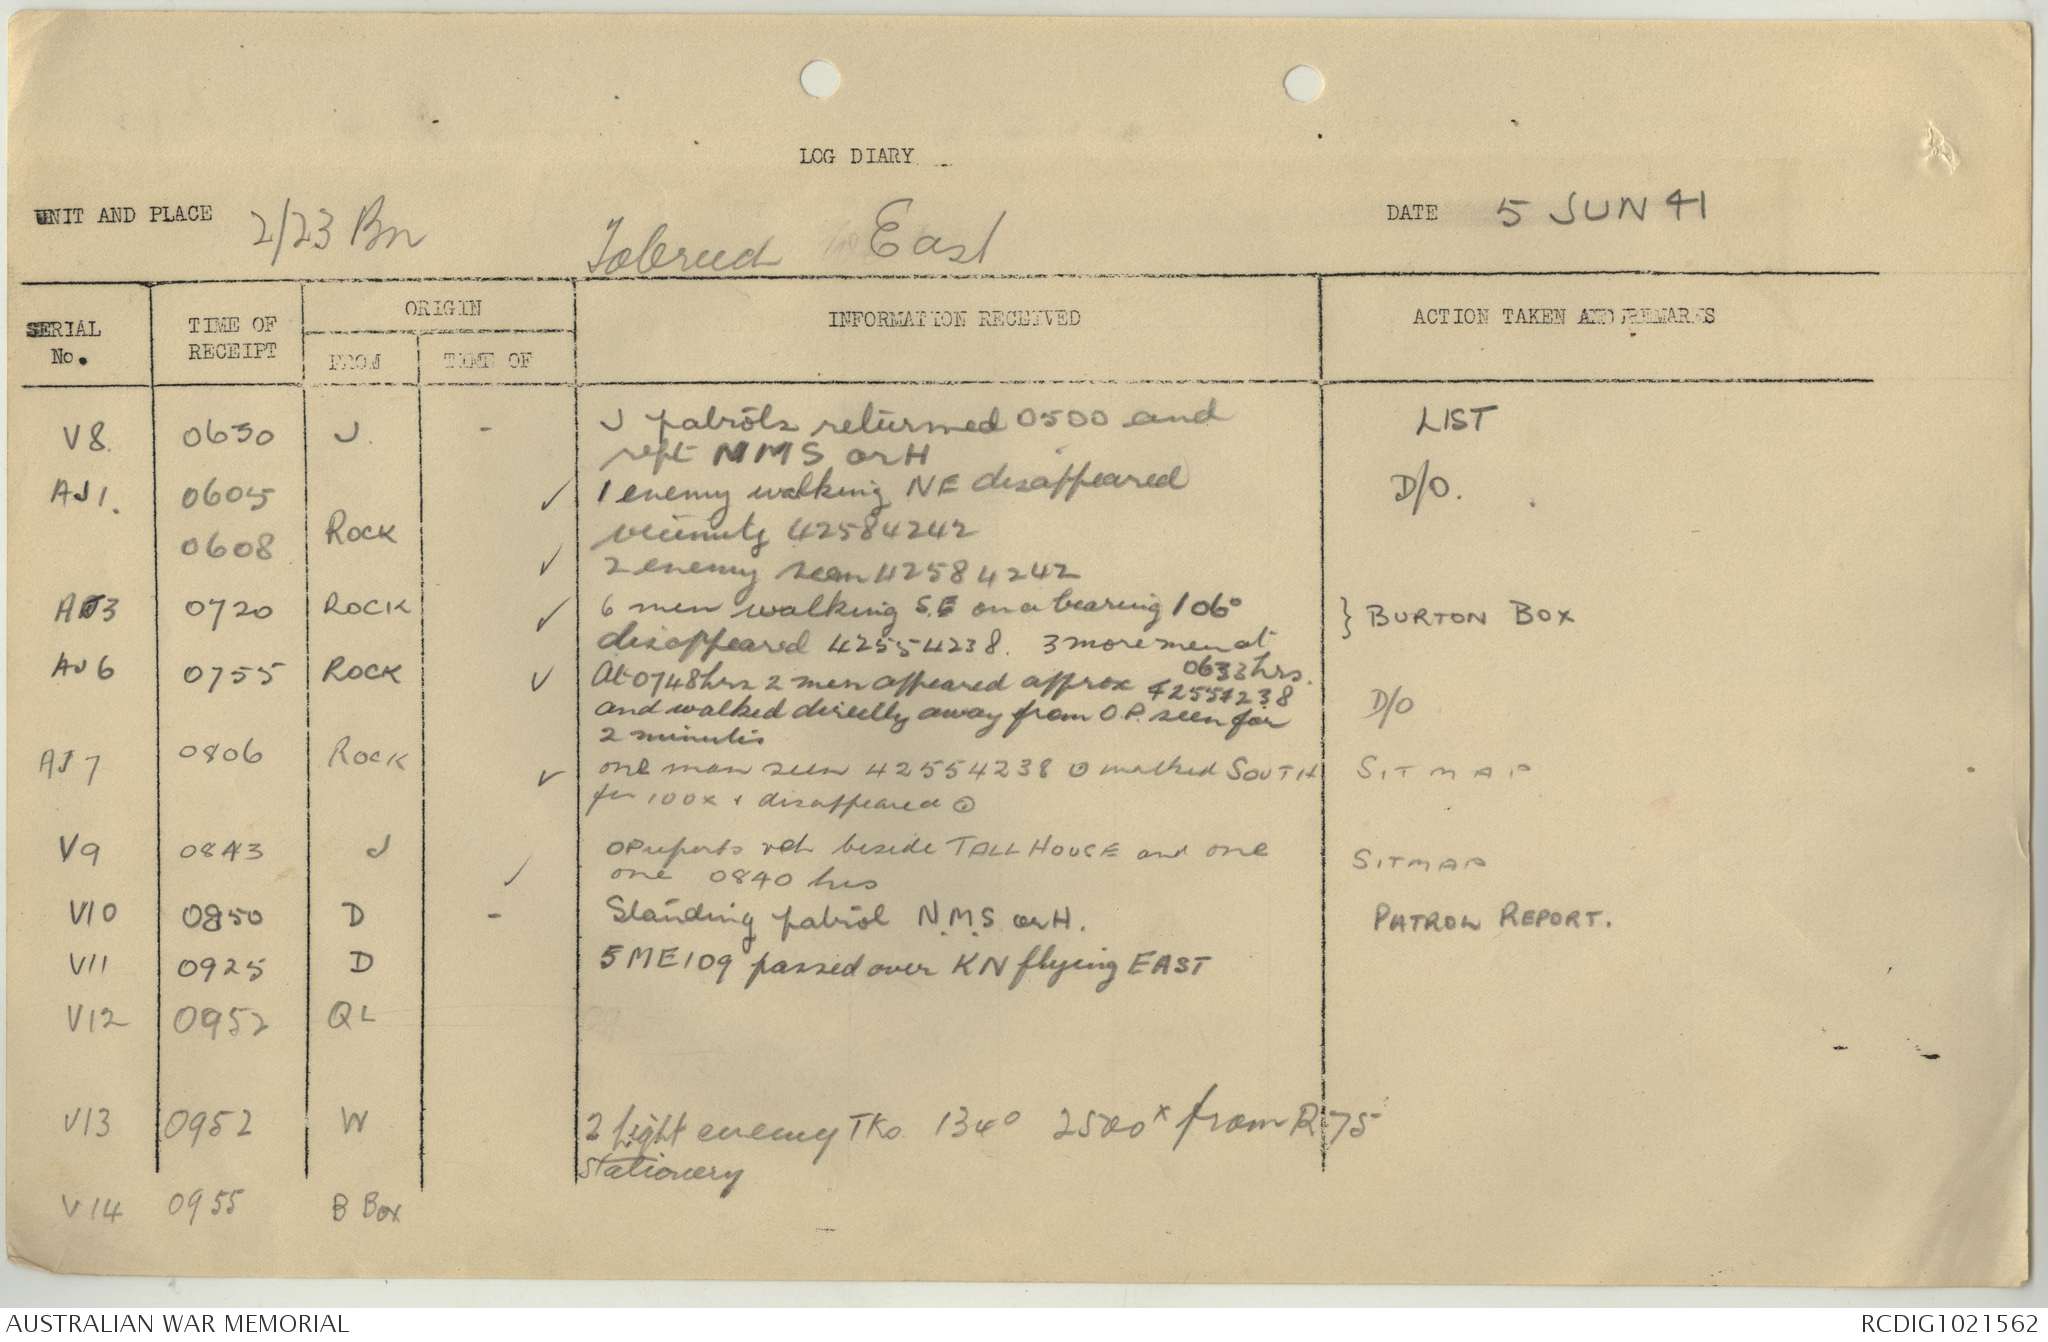 LOG DIARY
UNIT AND PLACE 2/23 Bn Tobruch East DATE 5 JUN 41
SERIAL No. TIME OF RECEIPT ORIGIN FROM TIME OF INFORMATION RECEIVED ACTION TAKEN AND REMARKS
V8 0630 J. - J patrols returned 0500 and LIST
rept NMS or H
AJ1. 0605 ✓ 1 enemy walking NE disappeared D/O.
Rock vicinity 42584242
0608 ✓ 2 enemy seen 42584242
AJ3 0720 ROCK ✓ 6 men walking S.E on a bearing 106° } BURTON BOX
disappeared 42554238. 3 more men at
0633 hrs.
AJ6 0755 ROCK ✓ At 0748 hrs 2 men appeared approx 42554238 D/O
and walked directly away from O.P. seen for
2 minutes
AJ7 0806 ROCK ✓ one man seen 42554238 ⊙ walked SOUTH SITMAP
for 100x + disappeared ⊙
V9 0843 J ✓ OP reports veh beside TALL HOUSE and one SITMAP
one 0840 hrs
V10 0850 D - Standing patrol N.M.S or H. PATROL REPORT.
V11 0925 D 5 ME109 passed over KN flying EAST
V12 0952 QL
V13 0952 W 2 light enemy TKs 134° 2500x from R75
stationery
V14 0955 B Box
AUSTRALIAN WAR MEMORIAL RCDIG1021562